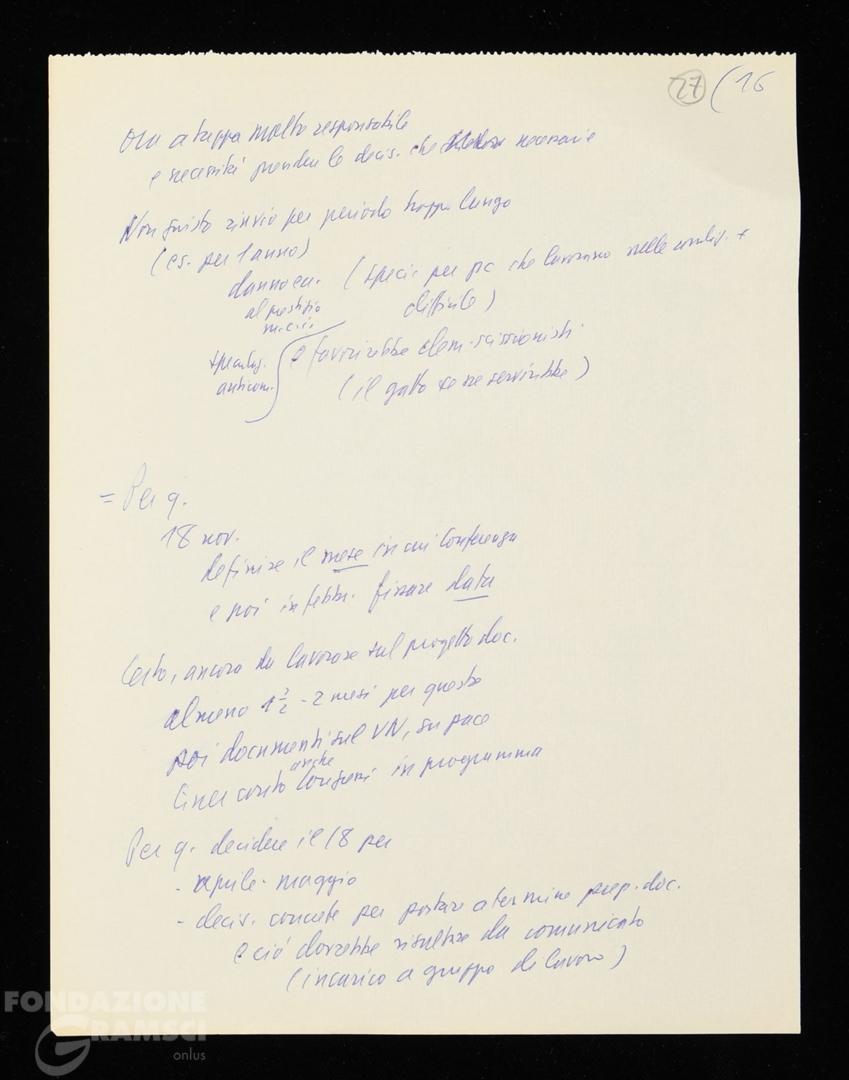 27 (16
Ora a tappa molto responsabile
e necessità prendere le decis. che necessarie
Non giusto rinvio per periodo troppo lungo
(es. per 1 anno)
dannoca. (specie per pc che lavorano nelle condiz. +
al prestigio difficile)
m.c.i.
speculaz. e favorirebbe elem. scissionisti
anticom. (il gatto se ne servirebbe)
= Per q.
18 nov.
definire il mese in cui Conferenza
e poi in febbr. fissare data
Certo, ancora da lavorare sul progetto doc.
almeno 1 1/2 - 2 mesi per questo
poi documenti sul VN, su pace
anche
tener conto Congressi in programma
Per q. decidere il 18 per
- aprile - maggio
- decis. concrete per portare a termine prep. doc.
e ciò dovrebbe risultare da comunicato
(incarico a gruppo di lavoro)
FONDAZIONE
GRAMSCI
onlus